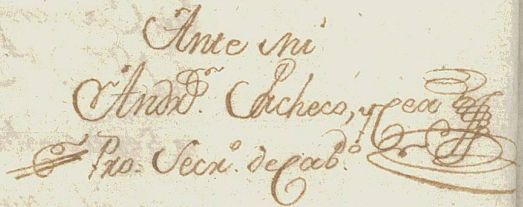 Ante mi
Andrs. Pacheco, y
Pro. Secro. de Cabo.